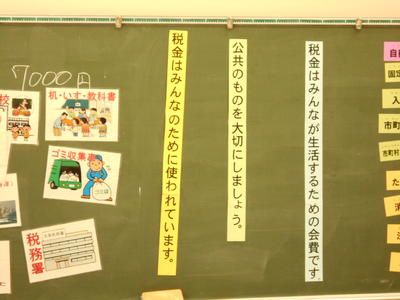 自
固定
入
市町
市町村
た
消
税金はみんなが生活するための会費です。
公共のものを大切にしましょう。
税金はみんなのために使われています。
7000円
机・いす・教科書
校
ゴミ収集車
ゴミ袋
税務署